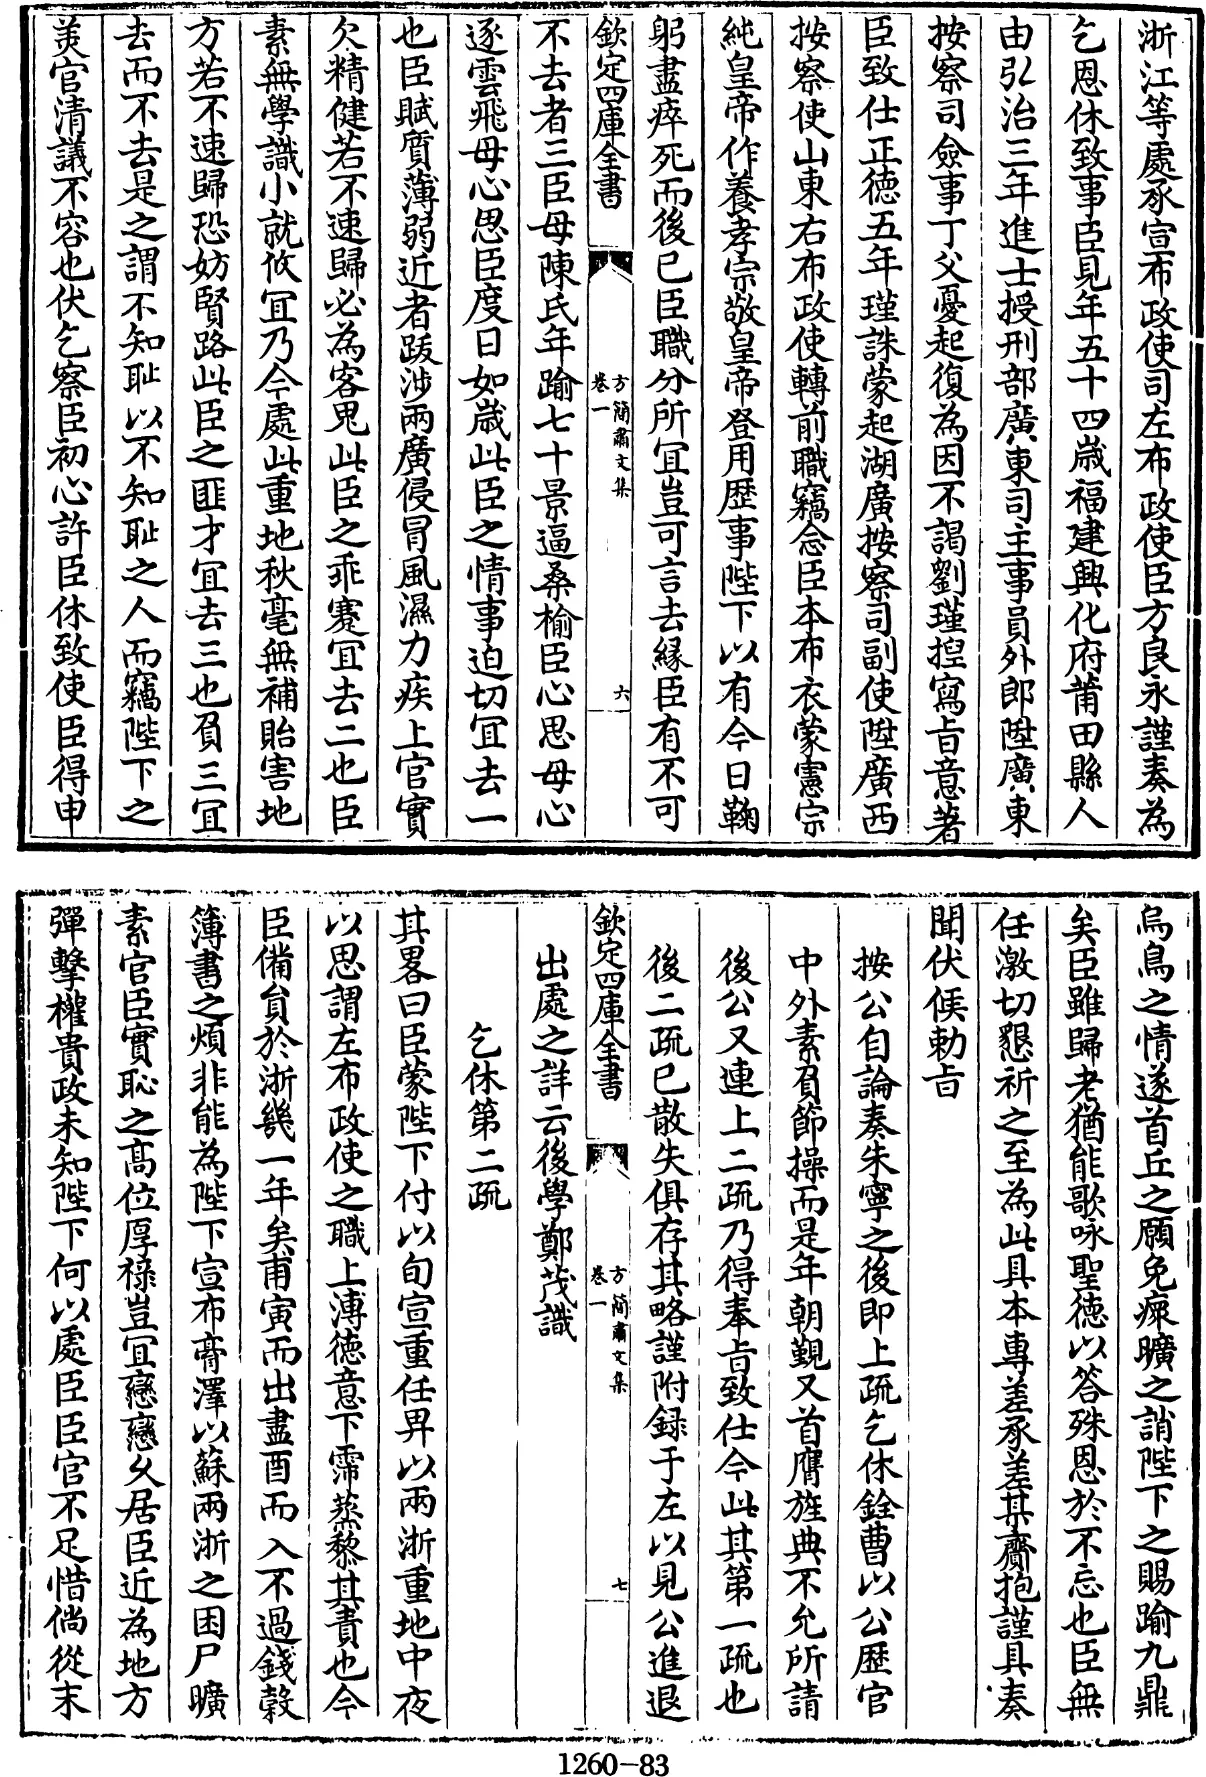 浙江等處承宣布政使司左布政使臣方良永謹奏為
乞恩休致事臣見年五十四歲福建興化府莆田縣人
由弘治三年進士授刑部廣東司主事員外郎陞廣東
按察司僉事丁父憂起復為因不謁劉瑾揑寫旨意著
臣致仕正德五年瑾誅蒙起湖廣按察司副使陞廣西
按察使山東右布政使轉前職竊念臣本布衣蒙憲宗
純皇帝作養孝宗敬皇帝登用歷事陛下以有今日鞠
躬盡瘁死而後已臣職分所宜豈可言去緣臣有不可
欽定四庫全書
方簡肅文集
卷一
六
不去者三臣母陳氏年踰七十景逼桑榆臣心思母心
逐雲飛母心思臣度日如歲此臣之情事迫切宜去一
也臣賦質薄弱近者跋涉兩廣侵冒風濕力疾上官實
欠精健若不速歸必為客鬼此臣之乖蹇宜去二也臣
素無學識小就攸宜乃今處此重地秋毫無補貽害地
方若不速歸恐妨賢路此臣之匪才宜去三也負三宜
去而不去是之謂不知恥以不知恥之人而竊陛下之
美官清議不容也伏乞察臣初心許臣休致使臣得申
烏鳥之情遂首丘之願免瘝曠之誚陛下之賜踰九鼎
矣臣雖歸老猶能歌咏聖德以答殊恩於不忘也臣無
任激切懇祈之至為此具本專差承差某齎抱謹具奏
聞伏候勅旨
按公自論奏朱寧之後即上疏乞休銓曹以公歷官
中外素負節操而是年朝覲又首膺旌典不允所請
後公又連上二疏乃得奉旨致仕今此其第一疏也
後二疏已散失俱存其略謹附録于左以見公進退
欽定四庫全書
方簡肅文集
卷一
七
出處之詳云後學鄭茂識
乞休第二疏
其畧曰臣蒙陛下付以旬宣重任畀以兩浙重地中夜
以思謂左布政使之職上溥德意下霈蒸黎其責也今
臣備員於浙幾一年矣甫寅而出盡酉而入不過錢穀
簿書之煩非能為陛下宣布膏澤以蘇兩浙之困尸曠
素官臣實恥之高位厚祿豈宜戀戀久居臣近為地方
彈擊權貴政未知陛下何以處臣臣官不足惜倘從末
1260-83